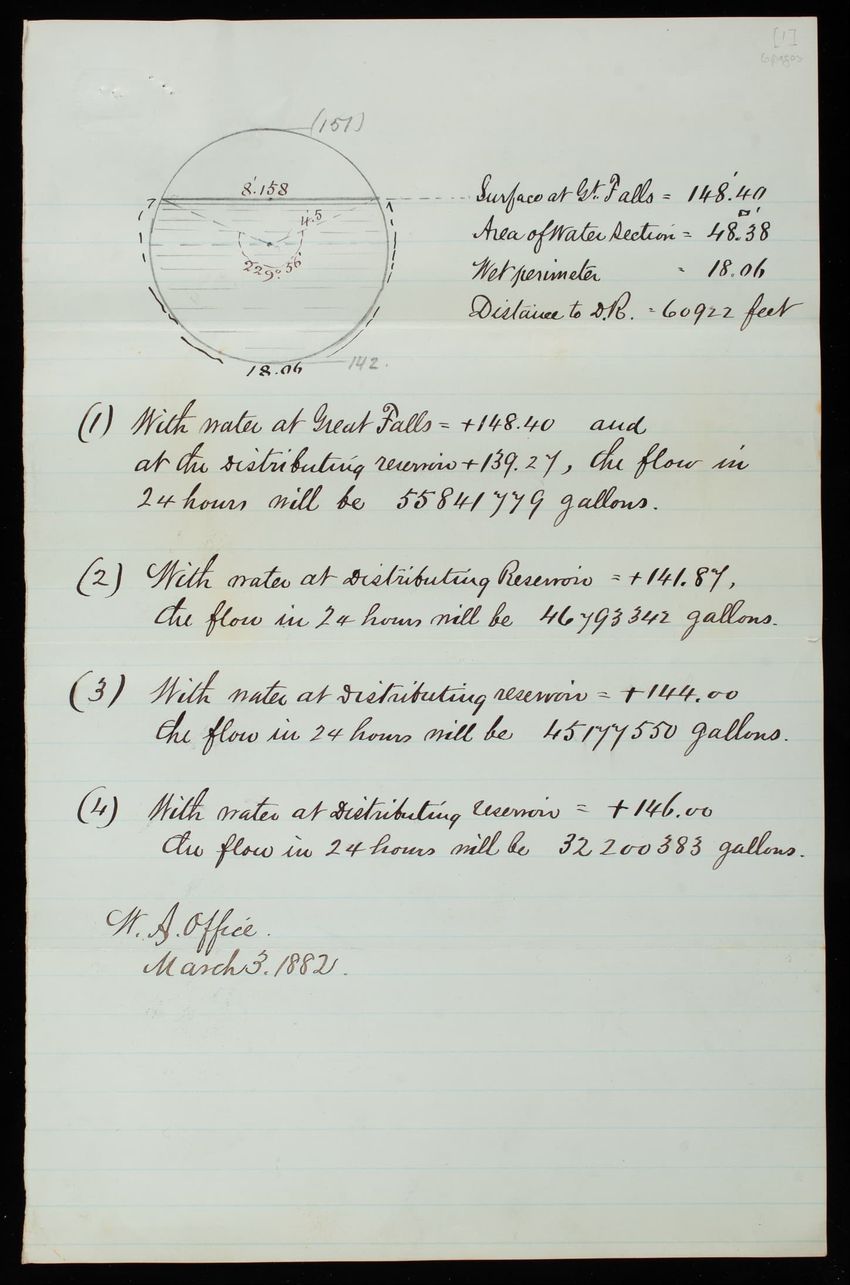 [1]
6 pages
(151)
8'.158
4.5
229°.56'
18.06
142.
Surface at Gt. Falls = 148'.40
Area of Water Section = 48.38
Wet perimeter = 18.06
Distance to D.R. = 60922 feet
(1) With water at Great Falls = +148.40 and
at the distributing reservoir +139.27, the flow in
24 hours will be 55841779 gallons.
(2) With water at Distributing Reservoir = +141.87,
the flow in 24 hours will be 46793342 gallons.
(3) With water at distributing reservoir = +144.00
the flow in 24 hours will be 45177550 gallons.
(4) With water at Distributing reservoir = +146.00
the flow in 24 hours will be 32200383 gallons.
W. A. Office.
March 3. 1882.